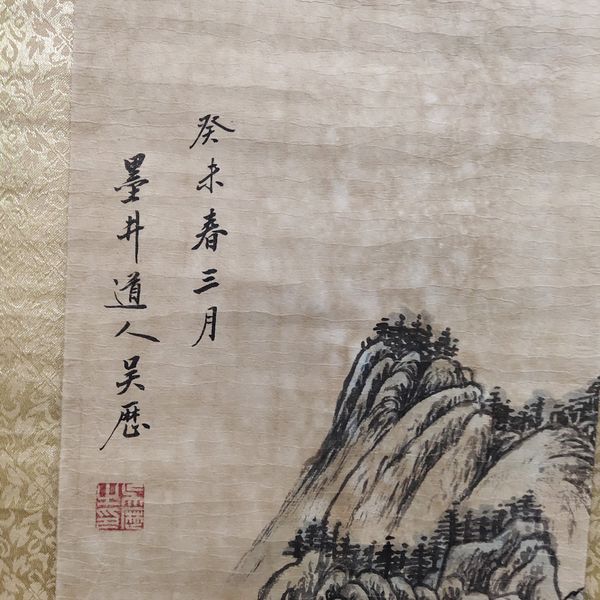 癸未春三月
墨井道人吴歷